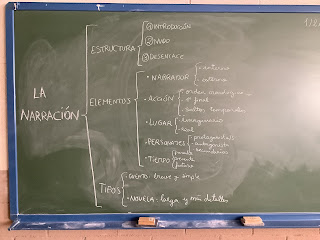 LA NARRACIÓN
ESTRUCTURA
① INTRODUCCIÓN
② NUDO
③ DESENLACE
ELEMENTOS
• NARRADOR
externo
• ACCIÓN
• orden cronológico
• saltos temporales
• LUGAR
imaginario
real
• PERSONAJES
protagonista
antagonista
secundarios
• TIEMPO
pasado
presente
futuro
TIPOS
• CUENTO: breve y simple
• NOVELA - larga y más detalles